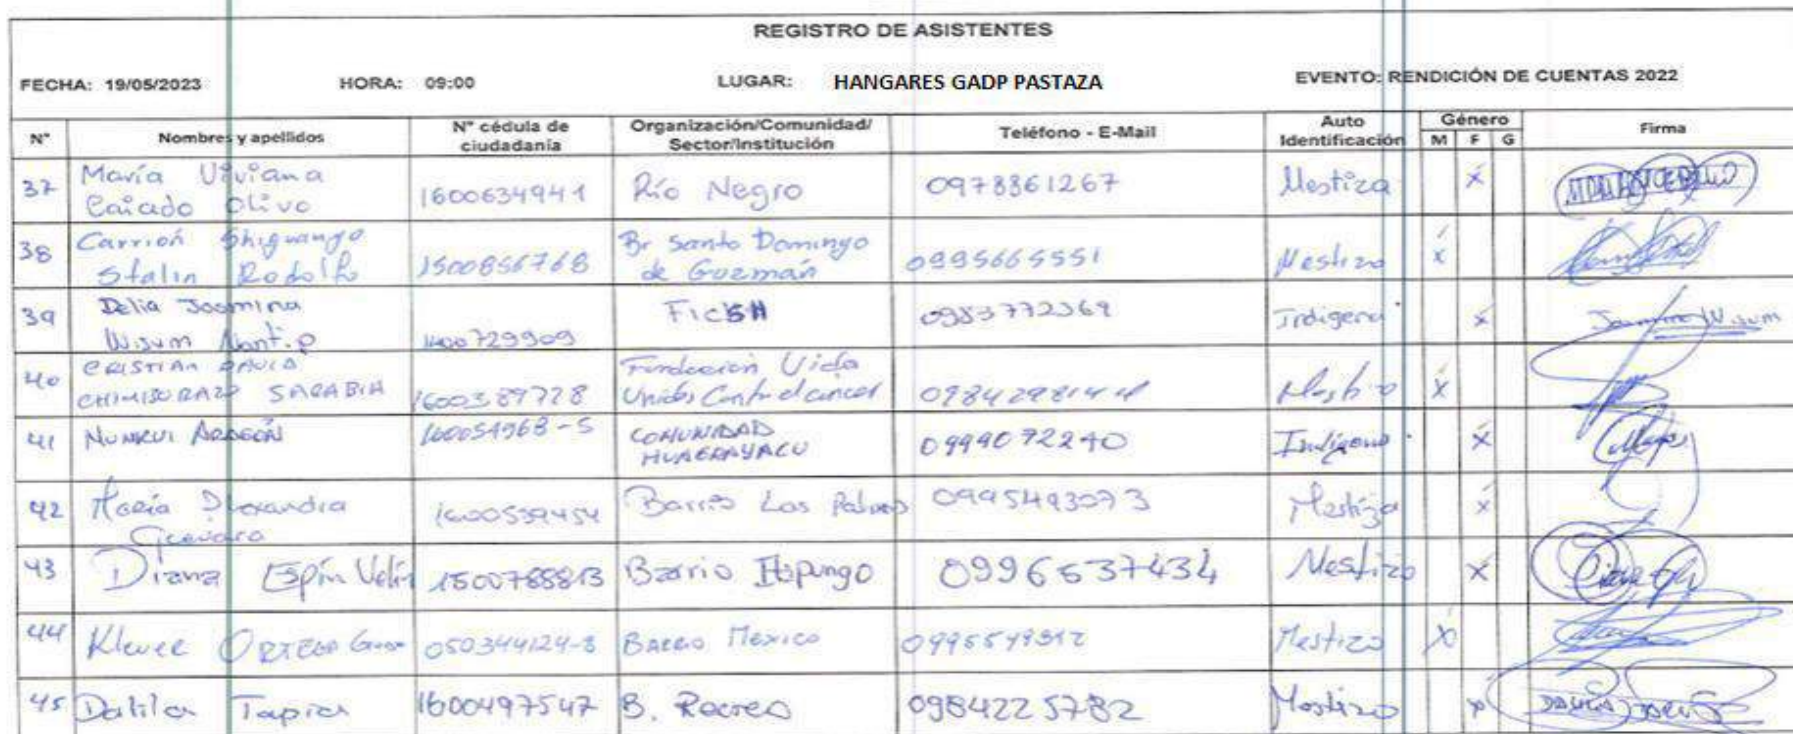 REGISTRO DE ASISTENTES
FECHA: 19/05/2023 HORA: 09:00 LUGAR: HANGARES GADP PASTAZA EVENTO: RENDICIÓN DE CUENTAS 2022
N° Nombres y apellidos N° cédula de ciudadanía Organización/Comunidad/ Sector/Institución Teléfono - E-Mail Auto Identificación Género M F G Firma
37 María Viviana Caicado Olivo 1600634941 Río Negro 0978861267 Mestiza x
38 Carrión Shiguango Stalin Rodolfo 1500856768 Br Santo Domingo de Guzmán 0995665551 Mestizo x
39 Delia Jasmina Wisum Nantip 1400729909 FICSH 0983772369 Indigena x Wisum
40 CRISTIAN DAVID CHIMBORAZO SARABIA 1600389728 Fundacion Vida Unidos Contra el cancer Mestizo x
41 NUNKUI ARAGÓN 160054968-5 COMUNIDAD 0999072240 Indígena x
42 María Alexandra Guevara 1600559454 Barrio Las Palmas 0995493073 Mestiza x
43 Diana Espín Velín Barrio 0996637434 Mestizo x
44 Klever ORTEGA 050344124-8 BARRIO Mexico Mestizo x
45 Dalila Tapia 1600497547 B. Recreo 0984225782 Mestizo x